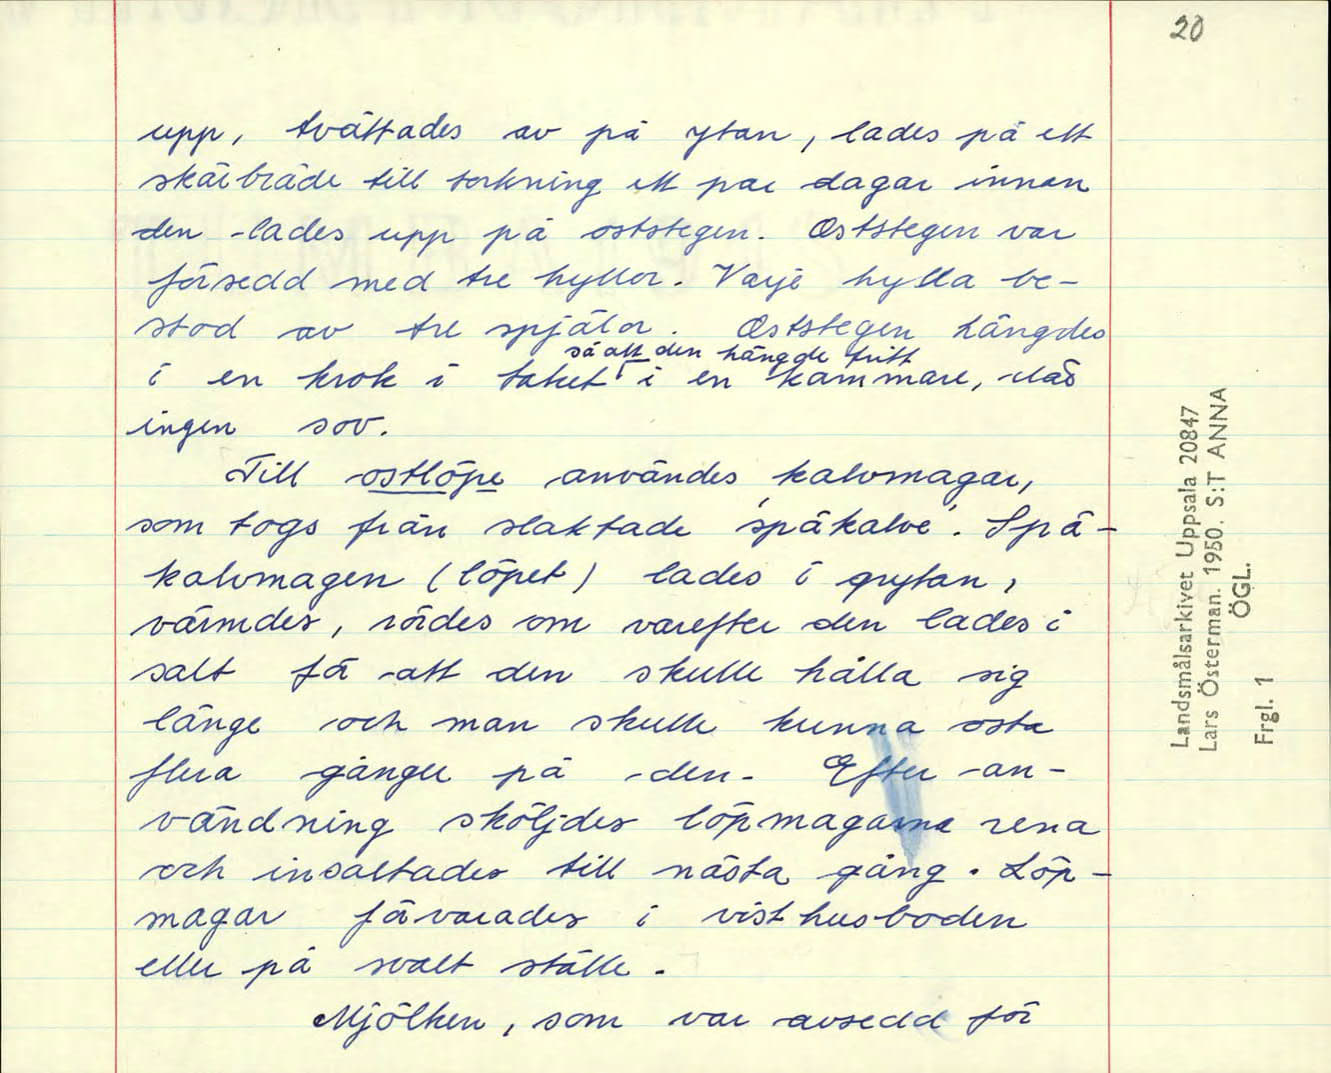 20
upp, tvättades av på ytan, lades på ett
skärbräde till torkning ett par dagar innan
den lades upp på oststegen. Oststegen var
försedd med tre hyllor. Varje hylla be-
stod av tre spjälor. Oststegen hängdes
så att den hängde fritt
i en krok i taket i en kammare, där
ingen sov.
Till ostlöpe användes kalvmagar,
som togs från slaktade 'späkalve'. Spä-
kalvmagen (löpet) lades i grytan,
värmdes, rördes om varefter den lades i
salt för att den skulle hålla sig
länge och man skulle kunna osta
flera gånger på den. Efter an-
vändning sköljdes löpmagarna rena
och insaltades till nästa gång. Löp-
magar förvarades i visthusboden
eller på svalt ställe.
Mjölken, som var avsedd för
Landsmålsarkivet Uppsala 20847
Lars Österman. 1950. S:T ANNA
ÖGL.
Frgl. 1